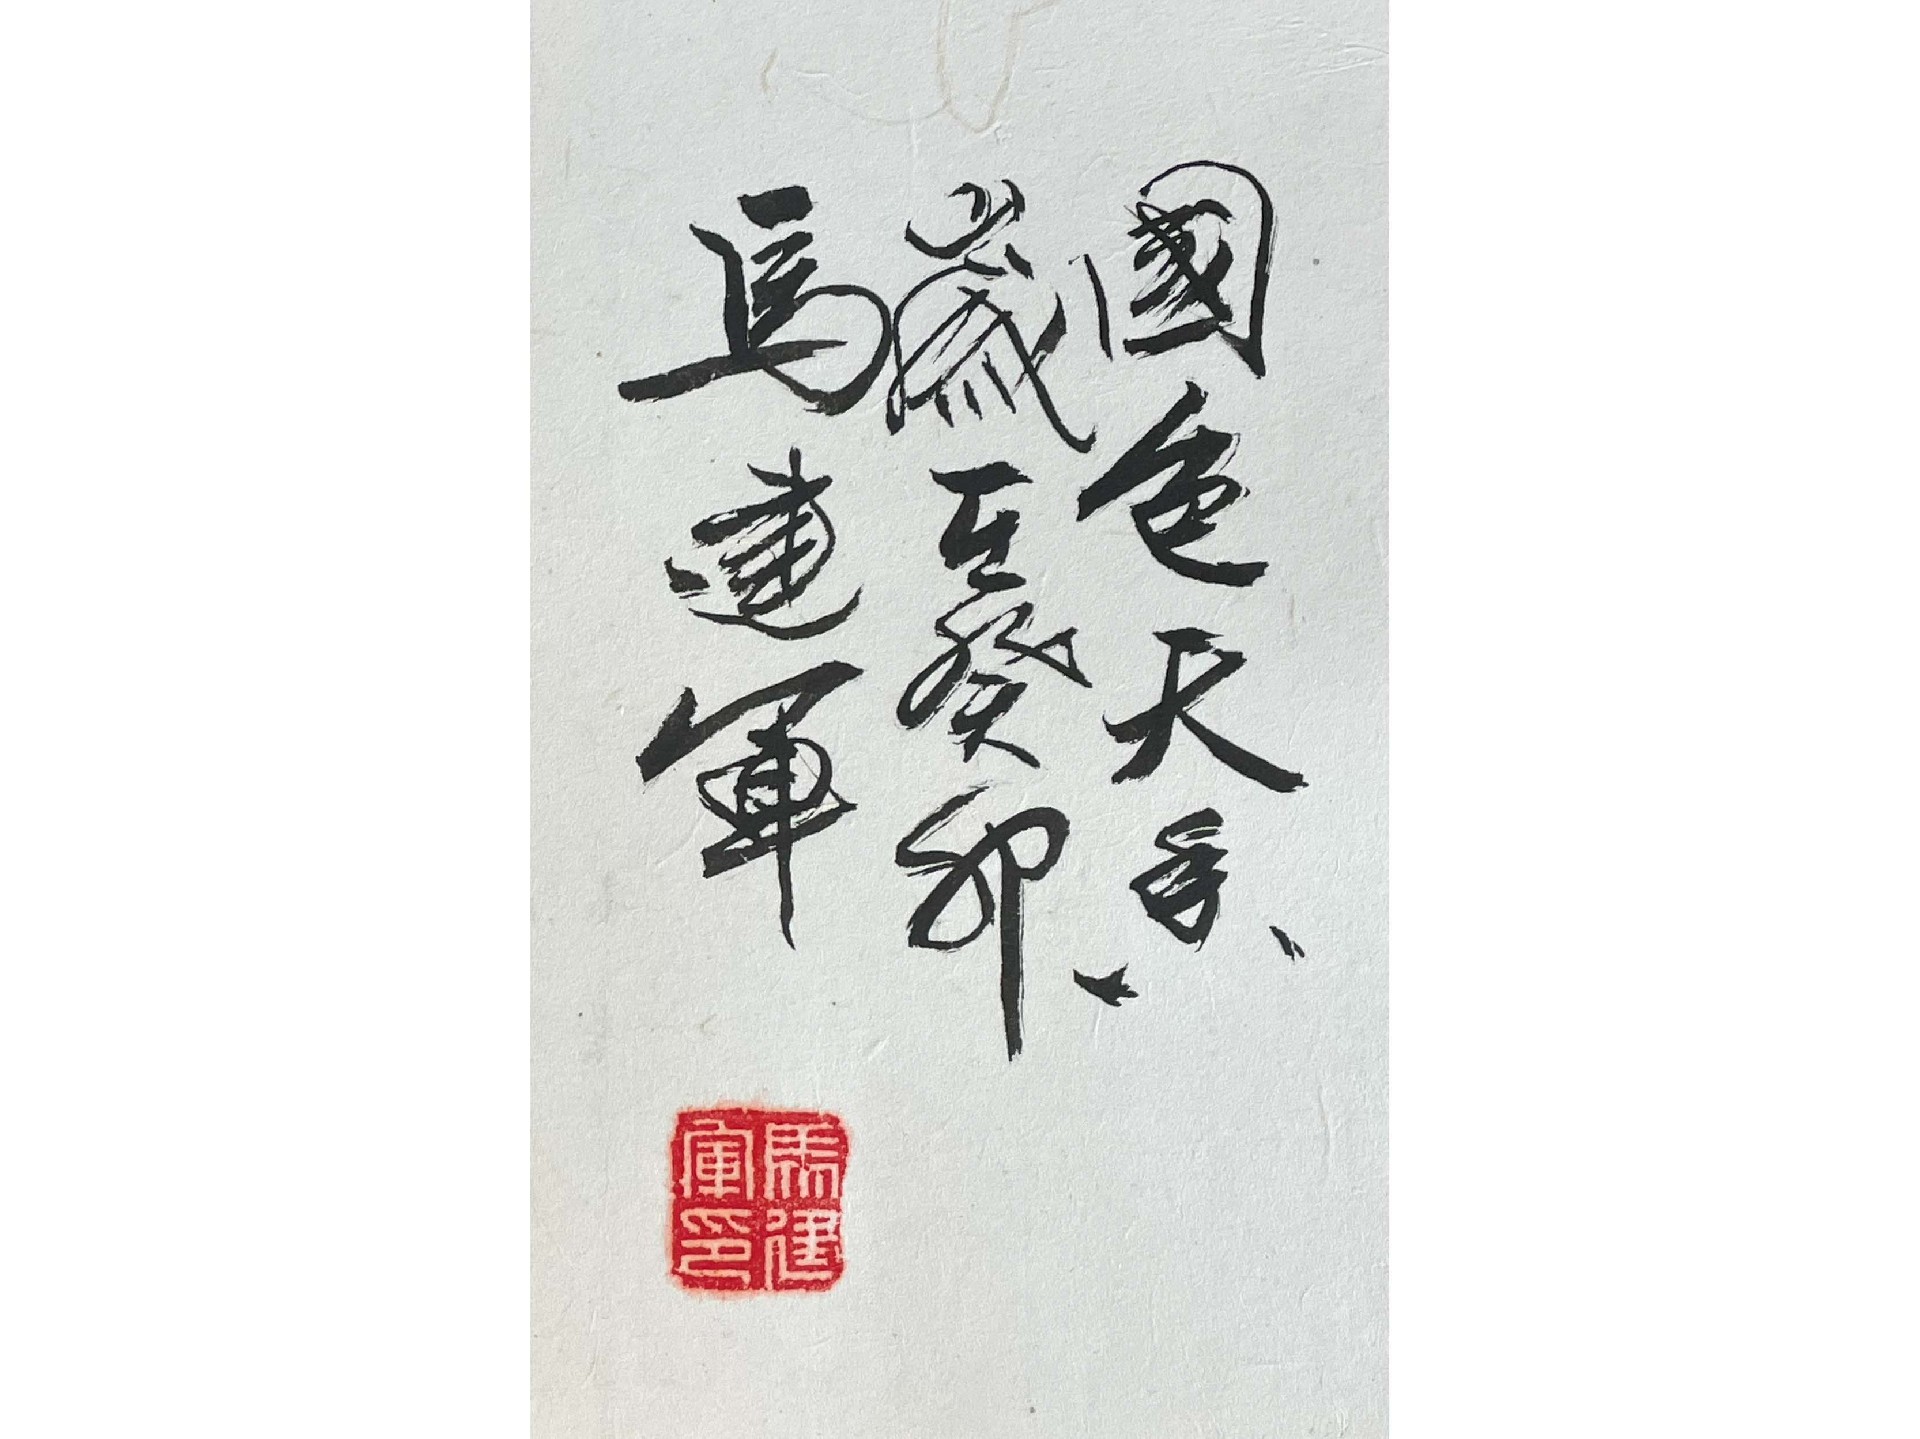 國色天香
歲在癸卯
馬建軍
馬建
軍印